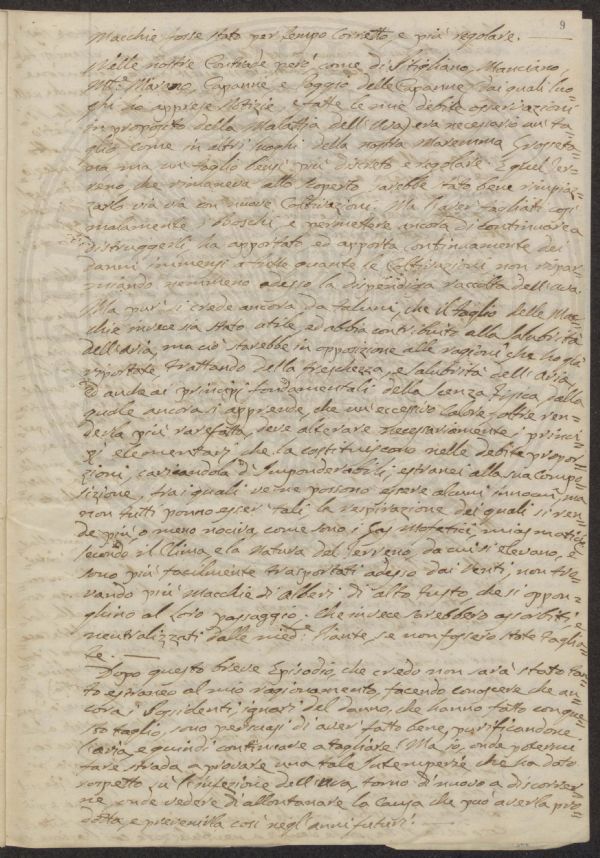 9
Macchie fosse stato per tempo Corretto e più regolare.
Nelle nostre Contrade però, come di Sitigliano, Manciano,
Mtte Marano, Capanne, e Poggio delle Capanne (dai quali luo=
ghi ho apprese Notizie, e fatte ce mie debite osservazioni
in proposito della Malattia dell'Uva) era necessario un ta
glio come in altri luoghi della nostra Maremma Grosseta=
na ma un taglio bensì più discreto e regolare. E quel Ter=
reno, che rimaneva allo scoperto, sarebbe stato bene rimpiaz=
zarlo via via con nuove Coltivazioni. Ma l'aver tagliati così
malamente i Boschi, e permettere ancora di continuare a
distruggerli, ha apportato, ed apporta continuamente dei
danni immensi a tutte quante le Coltivazioni non rispar=
miando nemmeno adesso la dispendiosa raccolta dell'Uva.
Ma pur si crede ancora da taluni, che il taglio delle Mac=
chie invece sia stato utile, ed abbia contribuito alla Salubrità
dell'Aria, ma ciò starebbe in opposizione alle ragioni, che ho già
riportate trattando della freschezza, e salubrità dell'Aria,
ed anche ai principj fondamentali della Scenza Fisica, dalla
quale ancora si apprende, che un eccessivo Calore, oltre ren=
derla più rarefatta, deve alterare necessariamente i princi=
pj elementari, che la costituiscono nelle debite propor=
zioni, caricandola d'Imponderabili, estranei alla sua Compo=
sizione, trai quali ve ne possono essere alcuni innocui, ma
non tutti ponno esser tali, la respirazione dei quali si ren=
de più, o meno nociva, come sono i Gas Mofetici, miasmatici
secondo il Clima, e la Natura del Terreno, da cui si elevano, e
sono più facilmente trasportati adesso dai Venti, non tro=
vando più Macchie di Alberi di alto fusto, che si oppon=
ghino al loro passaggio. Che invece sarebbero assorbiti, e
neutralizzati dalle med: Piante se non fossero state taglia=
te.
Dopo questo breve Episodio, che credo non sarà stato tan=
to estraneo al mio ragionamento, facendo conoscere che an=
cora i Possidenti, ignari del danno, che hanno fatto con que=
sto taglio, sono persuasi di aver fatto bene, purificandone
l'aria, e quindi continuare a tagliare! Ma io, onde potermi
fare strada a provare una tale Intemperie che ha dato
rospetto su l'infezione dell'Uva, torno di nuovo a discorrer=
ne, onde vedere di allontanare la Causa che può averla pro=
dotta, e prevenirla così negl'anni futuri.